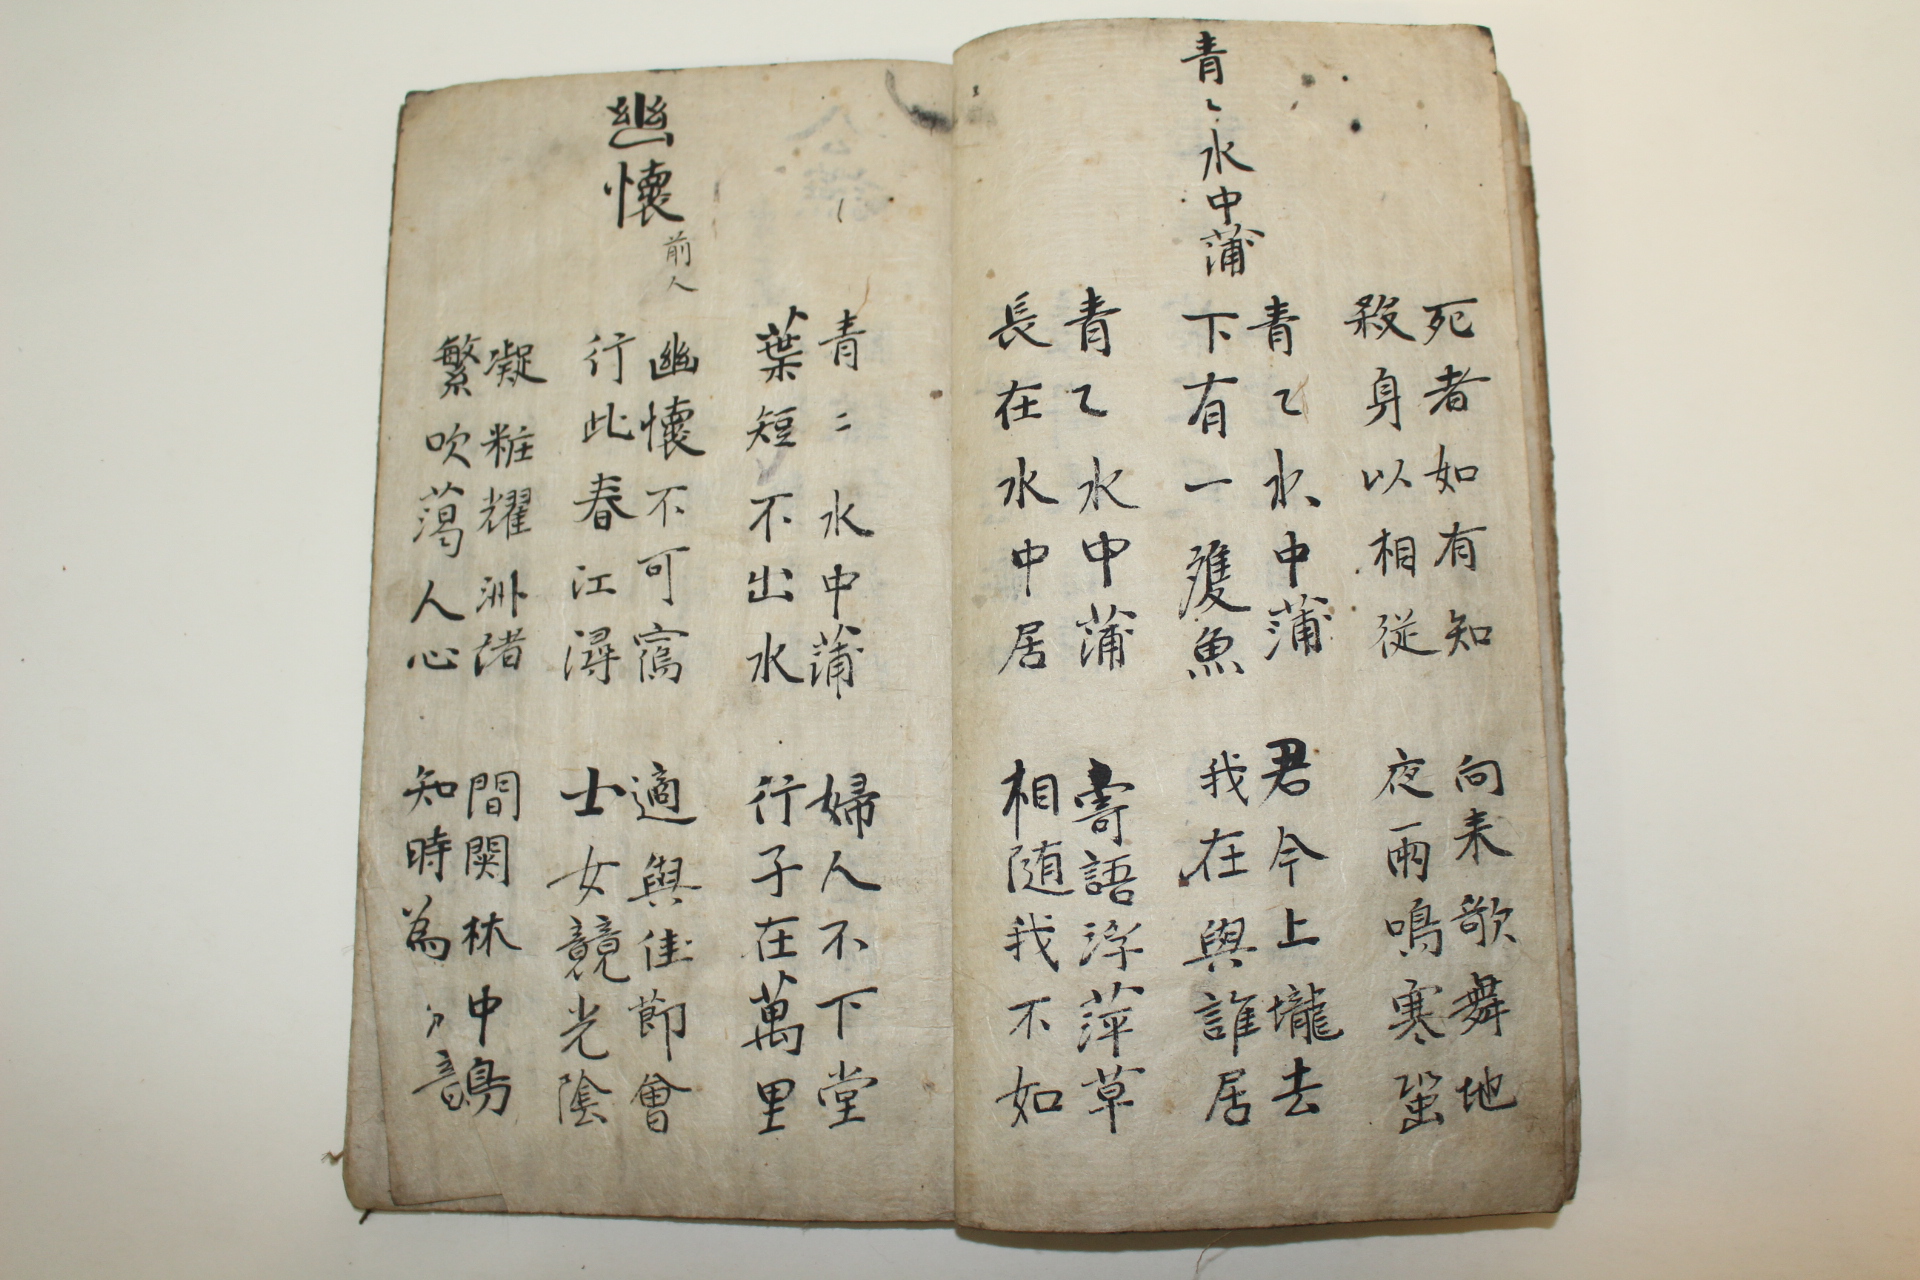 死者如有知
殺身以相從
向来歌舞地
夜雨鳴寒蛩
青〻水中蒲
青〻水中蒲
下有一雙魚
君今上壠去
我在與誰居
青〻水中蒲
長在水中居
寄語浮萍草
相随我不如
青〻水中蒲
葉短不出水
婦人不下堂
行子在萬里
幽懷 前人
幽懷不可寫
行此春江潯
適與佳節會
士女競光陰
凝粧耀洲渚
繁吹蕩人心
間関林中鳥
知時為音